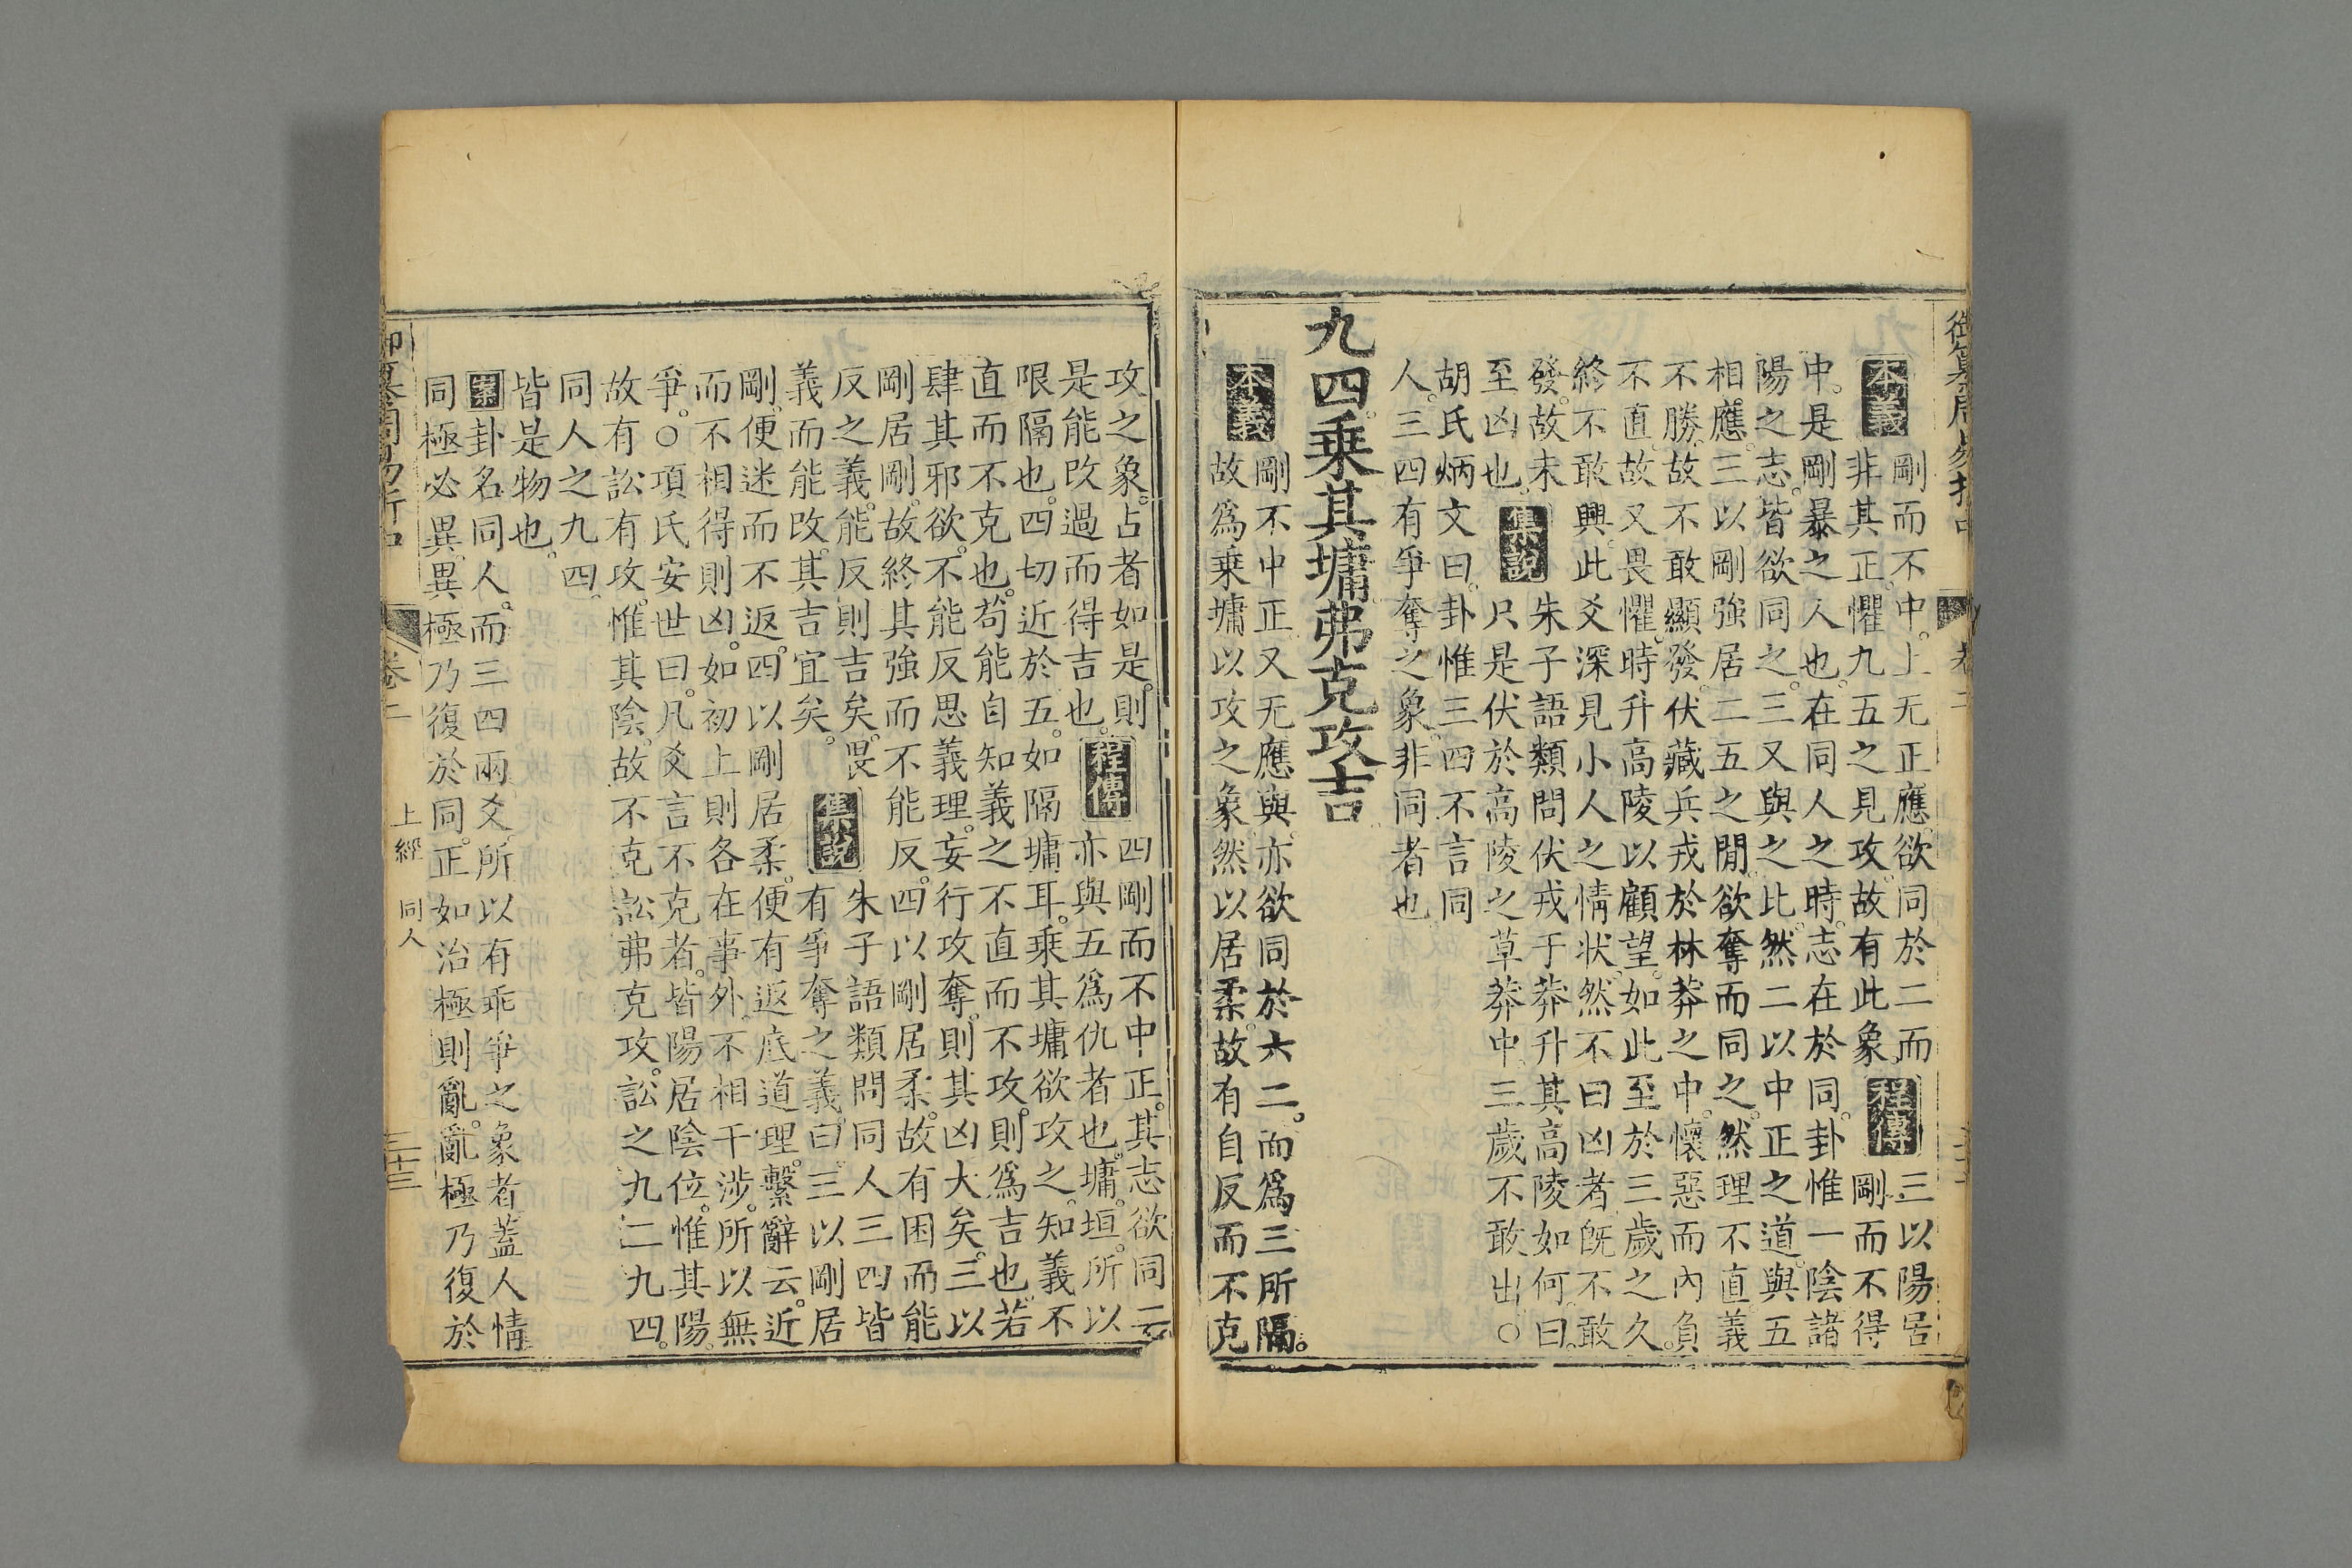 御纂周易折中 卷二
本義
剛而不中。上无正應。欲同於二而
非其正。懼九五之見攻。故有此象。
程傳
三以陽居
剛而不得
中。是剛暴之人也。在同人之時。志在於同。卦惟一陰諸
陽之志。皆欲同之。三又與之比。然二以中正之道。與五
相應。三以剛強居二五之閒。欲奪而同之。然理不直。義
不勝。故不敢顯發。伏藏兵戎於林莽之中。懷惡而內負
不直。故又畏懼。時升高陵以顧望。如此至於三歲之久。
終不敢興。此爻深見小人之情狀。然不曰凶者。既不敢
發。故未
至凶也。
集說
朱子語類問伏戎于莽升其高陵如何。曰。
只是伏於高陵之草莽中。三歲不敢出。○
胡氏炳文曰。卦惟三四不言同
人。三四有爭奪之象。非同者也。
九四。乗其墉。弗克攻。吉
本義
剛不中正。又无應與。亦欲同於六二。而爲三所隔。
故爲乗墉以攻之象。然以居柔。故有自反而不克
攻之象。占者如是。則
是能改過而得吉也。
程傳
四剛而不中正。其志欲同二。
亦與五爲仇者也。墉。垣。所以
限隔也。四切近於五。如隔墉耳。乗其墉欲攻之。知義不
直而不克也。苟能自知義之不直而不攻。則爲吉也。若
肆其邪欲。不能反思義理。妄行攻奪。則其凶大矣。三以
剛居剛。故終其強而不能反。四以剛居柔。故有困而能
反之義。能反則吉矣。畏
義而能改。其吉宜矣。
集說
朱子語類問同人三四皆
有爭奪之義。曰。三以剛居
剛。便迷而不返。四以剛居柔。便有返底道理。繫辭云。近
而不相得則凶。如初上則各在事外。不相干涉。所以無
爭。○項氏安世曰。凡爻言不克者。皆陽居陰位。惟其陽。
故有訟有攻。惟其陰。故不克訟弗克攻。訟之九二九四。
同人之九四。
皆是物也。
案
卦名同人。而三四兩爻。所以有乖爭之象者。蓋人情
同極必異。異極乃復於同。正如治極則亂。亂極乃復於
御纂周易折中 卷二 上經 同人 三十三